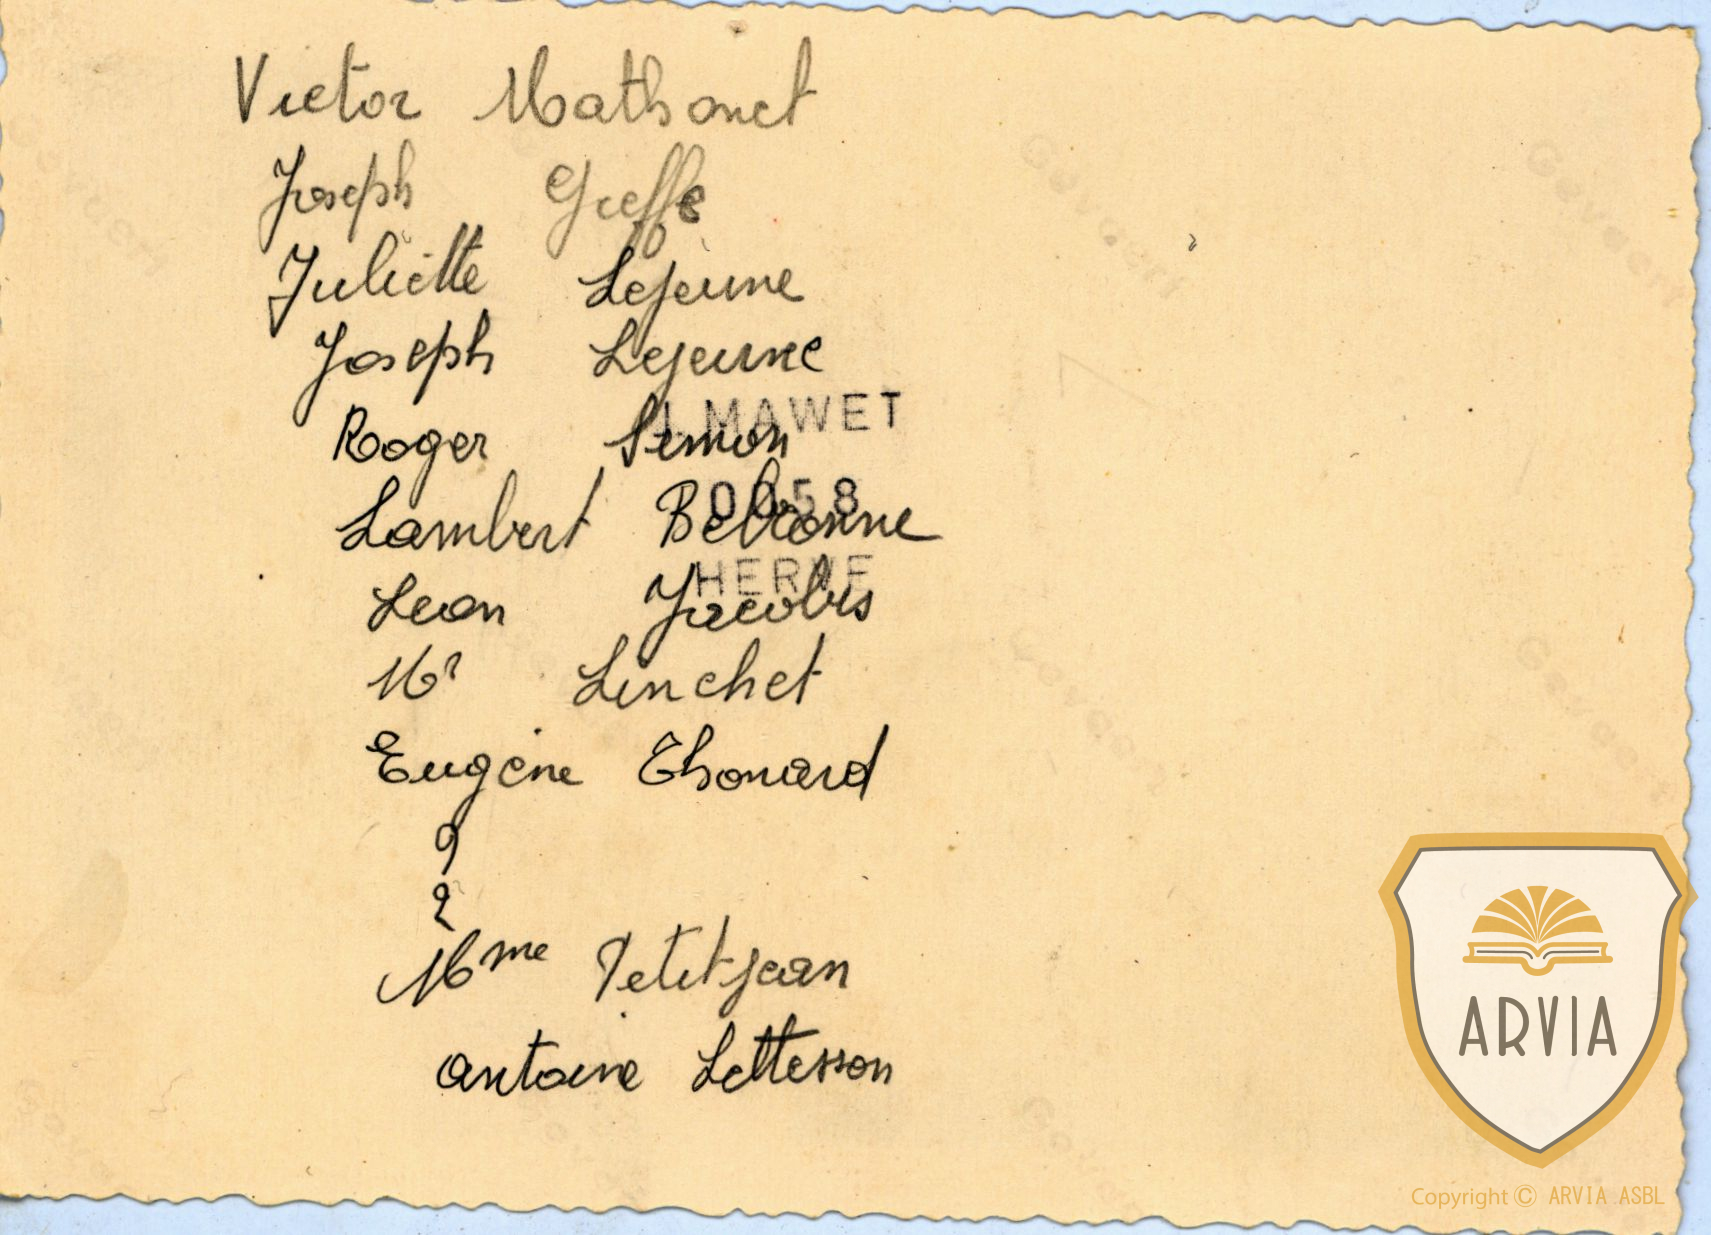 Victor Mathonet
Joseph Greffe
Juliette Lejeune
Joseph Lejeune
J. MAWET
Roger Simon
0658
Lambert Beltronne
HERVE
Leon Jacobs
Mr Linchet
Eugène Thonard
?
?
Mme Petitjean
Antoine Lettesson
ARVIA
Copyright © ARVIA ASBL